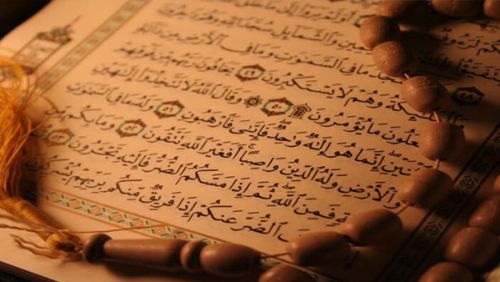 أَوَلَمْ يَرَوْا۟ إِلَىٰ
ٱلْيَمِينِ وَٱلشَّمَآئِلِ سُجَّدًا لِّلَّهِ وَهُمْ
يَسْجُدُ مَا فِى ٱلسَّمَٰوَٰتِ وَمَا فِى ٱلْأَرْضِ مِن
وَٱلْمَلَٰٓئِكَةُ وَهُمْ لَا يَسْتَكْبِرُونَ ۝ يَخَافُونَ رَبَّهُم مِّن فَوْقِهِمْ
عَلُونَ مَا يُؤْمَرُونَ ۩ ۝ وَقَالَ ٱللَّهُ لَا تَتَّخِذُوٓا۟ إِلَٰهَيْنِ
نَيْنِ إِنَّمَا هُوَ إِلَٰهٌ وَٰحِدٌ فَإِيَّٰىَ فَٱرْهَبُونِ ۝ وَلَهُۥ مَا فِى
وَٱلْأَرْضِ وَلَهُ ٱلدِّينُ وَاصِبًا أَفَغَيْرَ ٱللَّهِ تَتَّقُونَ ۝ وَمَا بِكُم
فَمِنَ ٱللَّهِ ثُمَّ إِذَا مَسَّكُمُ ٱلضُّرُّ فَإِلَيْهِ تَجْـَٔرُونَ ۝
ٱلضُّرَّ عَنكُمْ إِذَا فَرِيقٌ مِّنكُم بِرَبِّهِمْ